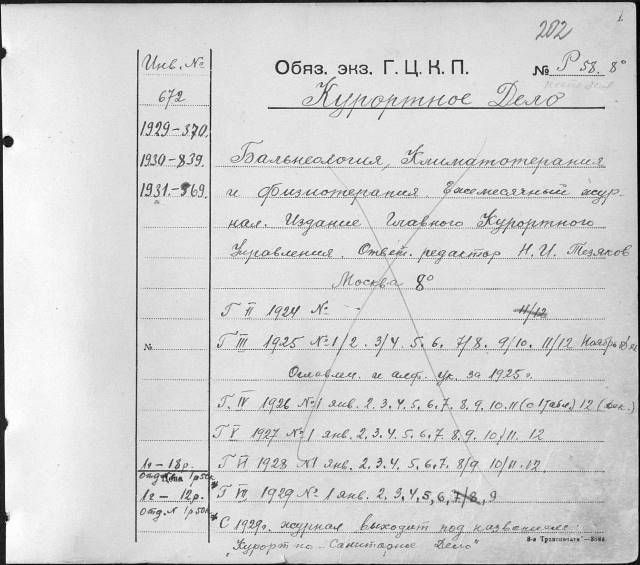 202
Инв. №
Обяз. экз. Г. Ц. К. П. № Р 58. 8°
672
Курортное Дело
1929-370.
1930-839.
1931-569.
Бальнеология, Климатотерапия
и физиотерапия. Ежемесячный жур-
нал. Издание Главного Курортного
Управления. Ответ. редактор Н. И. Тезяков
Москва 8°
Г II 1924 № - 11/12
№ Г III 1925 №1/2. 3/4. 5. 6. 7/8. 9/10. 11/12 Ноябрь
и алф. ук. за 1925 г.
Г. IV 1926 №1 янв. 2. 3. 4. 5. 6. 7. 8. 9. 10. 11 (с 1 табл.) 12 (дек.)
Г V 1927 №1 янв. 2. 3. 4. 5. 6. 7. 8. 9. 10/11. 12
1г-18р. Г VI 1928 №1 янв. 2. 3. 4. 5. 6. 7. 8/9. 10/11. 12
Отд. № 1р 50к
Цена
1г-12р. * Г VII 1929 № 1 янв. 2, 3, 4, 5, 6, 7/8, 9
Отд. № 1р 50к
* С 1929г. журнал выходит под названием:
„Курортно-Санитарное Дело"
3-я Транспечать